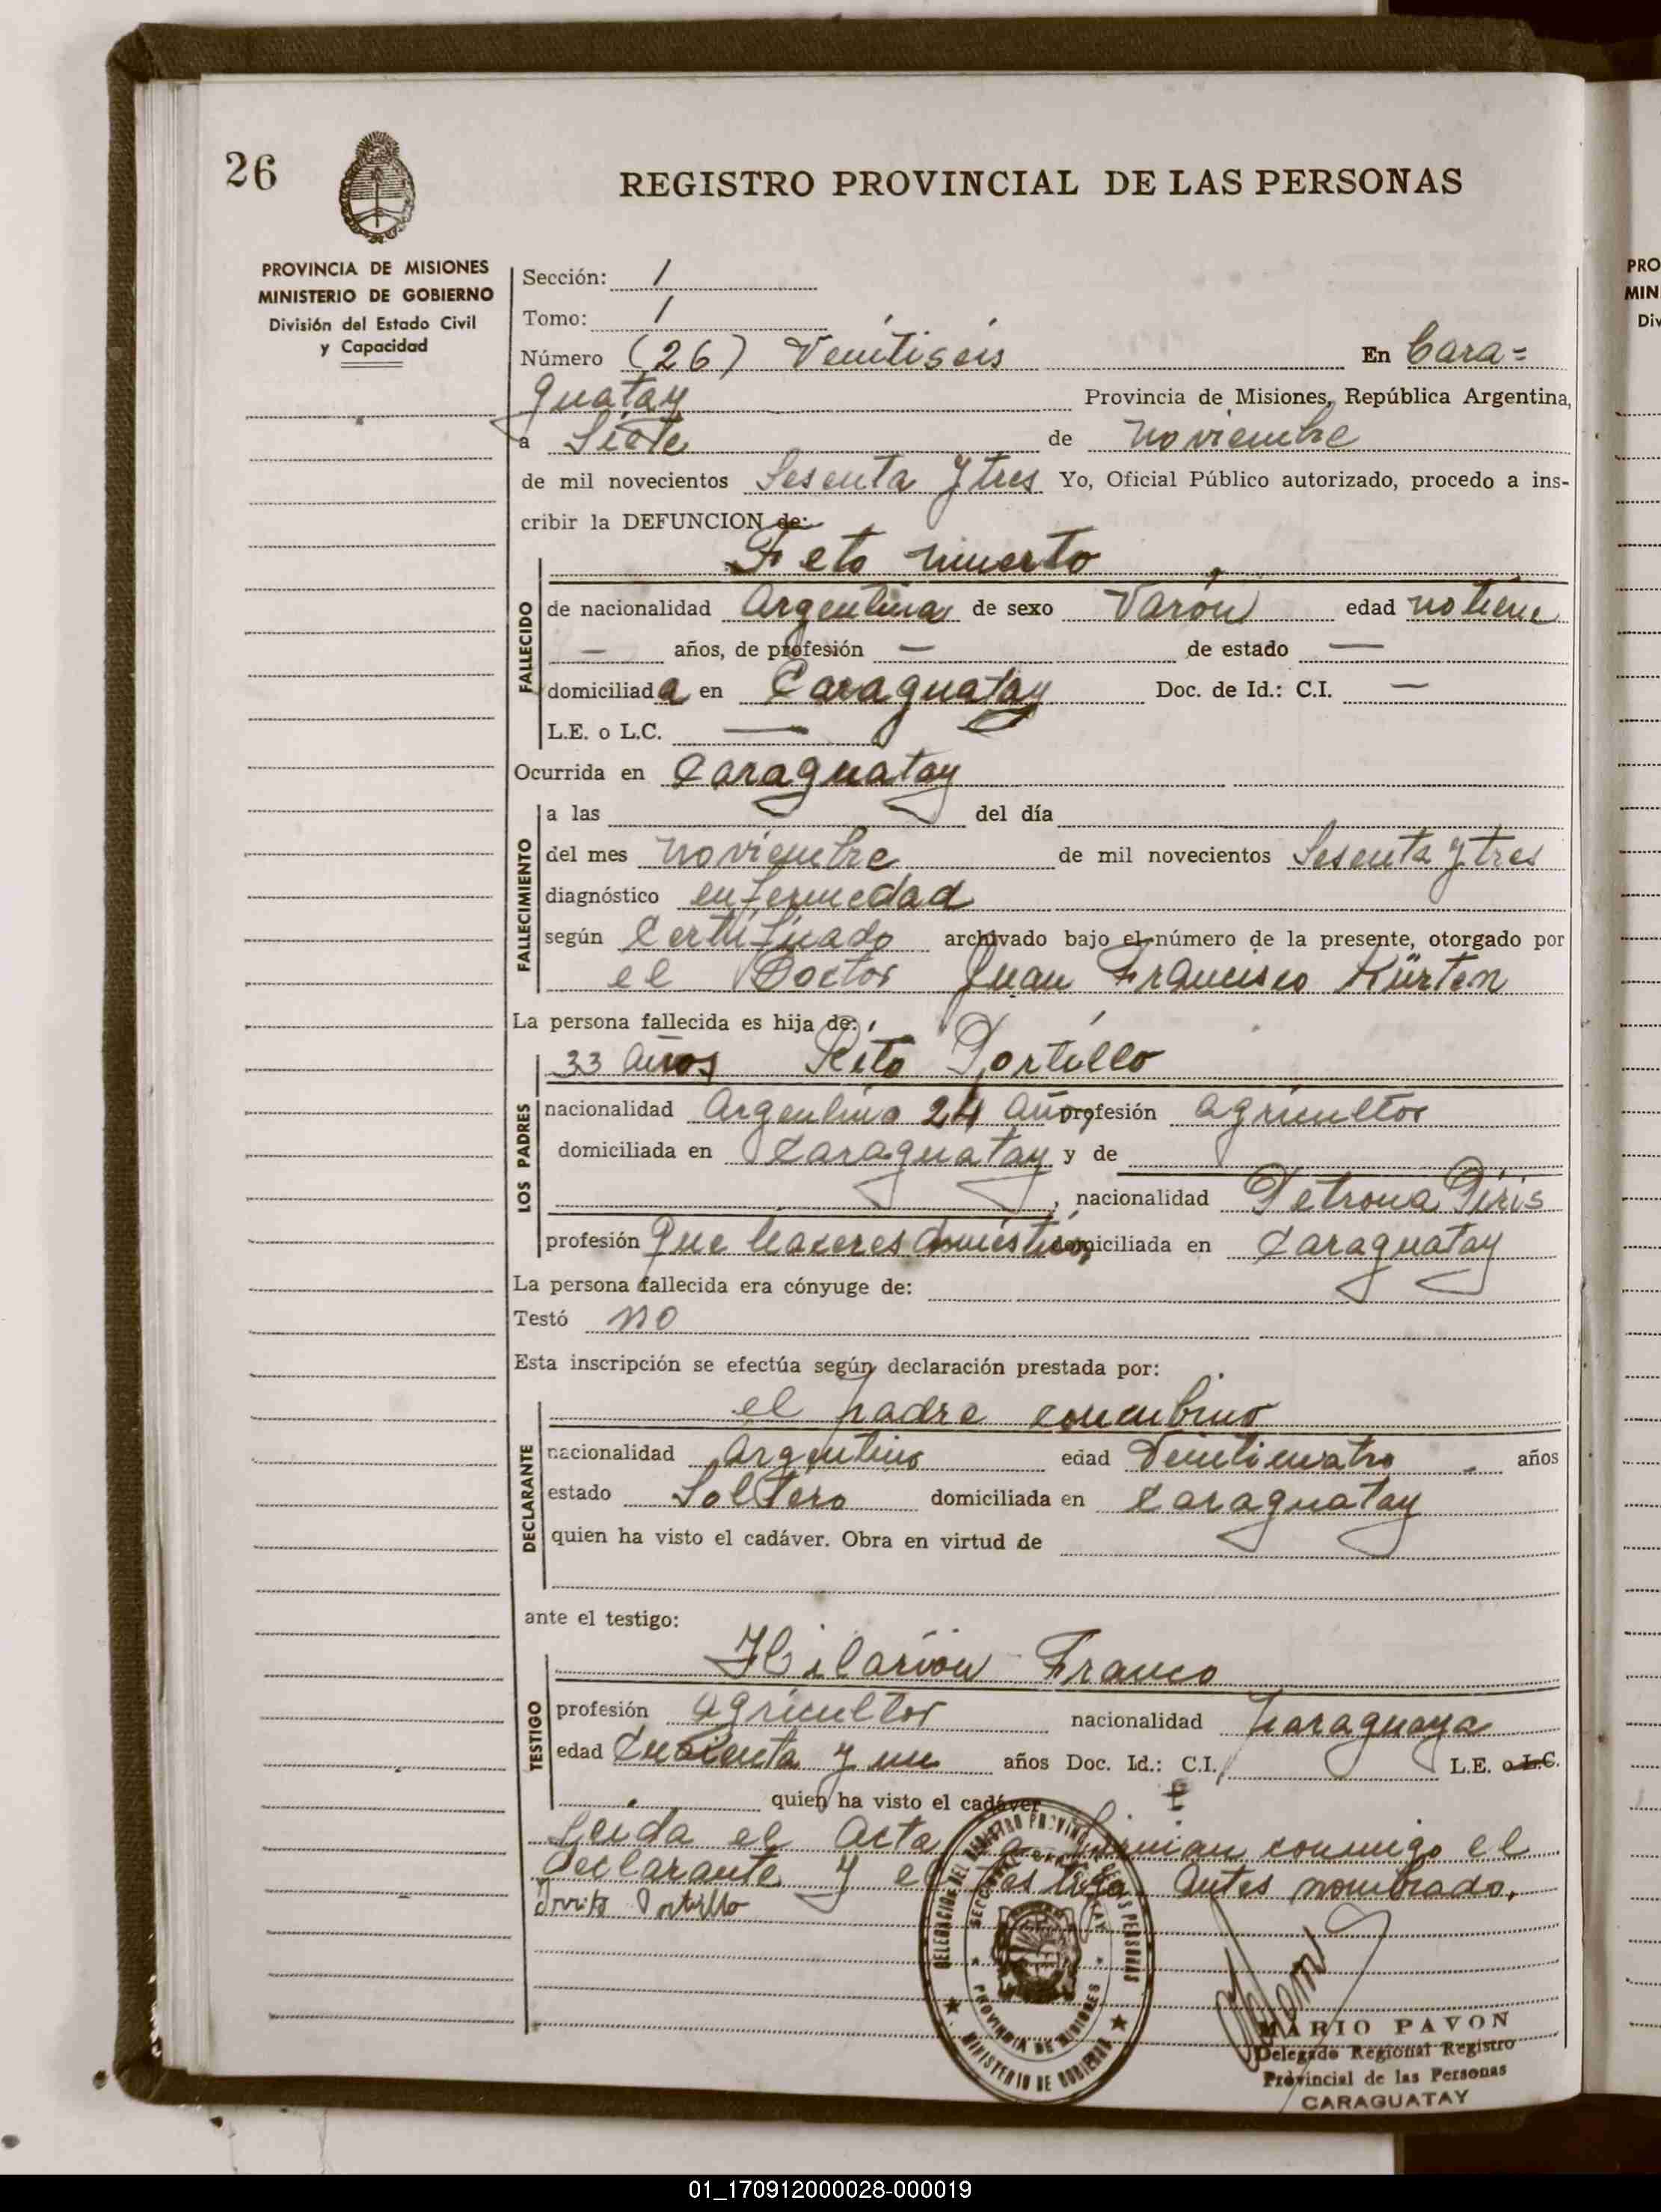 26
REGISTRO PROVINCIAL DE LAS PERSONAS
PROVINCIA DE MISIONES
MINISTERIO DE GOBIERNO
División del Estado Civil
y Capacidad
Sección: 1
Tomo: 1
Número (26) Veintiséis En Cara=
guatay Provincia de Misiones, República Argentina,
a Siete de noviembre
de mil novecientos Sesenta y tres Yo, Oficial Público autorizado, procedo a ins-
cribir la DEFUNCION de:
Feto muerto
FALLECIDO
de nacionalidad Argentina de sexo Varón edad no tiene
— años, de profesión — de estado —
domiciliada en Caraguatay Doc. de Id.: C.I. —
L.E. o L.C. —
Ocurrida en Caraguatay
FALLECIMIENTO
a las del día
del mes noviembre de mil novecientos Sesenta y tres
diagnóstico enfermedad
según Certificado archivado bajo el número de la presente, otorgado por
el Doctor Juan Francisco Kürten
La persona fallecida es hija de:
LOS PADRES
33 años Rito Portillo
nacionalidad Argentino 24 años profesión agricultor
domiciliada en Caraguatay y de
, nacionalidad Petrona Piris
profesión Que haceres domésticos domiciliada en Caraguatay
La persona fallecida era cónyuge de:
Testó no
Esta inscripción se efectúa según declaración prestada por:
DECLARANTE
el padre concubino
nacionalidad Argentino edad Veinticuatro años
estado Soltero domiciliada en Caraguatay
quien ha visto el cadáver. Obra en virtud de
ante el testigo:
TESTIGO
Hilarión Franco
profesión agricultor nacionalidad paraguaya
edad Cuarenta y un años Doc. Id.: C.I. L.E. o L.C.
quien ha visto el cadáver
Leída el Acta la firman conmigo el
declarante y el testigo Antes nombrado.
Portillo
DELEGACION DEL REGISTRO PROVINCIAL DE LAS PERSONAS
PROVINCIA DE MISIONES
MINISTERIO DE GOBIERNO
MARIO PAVON
Delegado Regional Registro
Provincial de las Personas
CARAGUATAY
PRO
MIN
Div
01_170912000028-000019